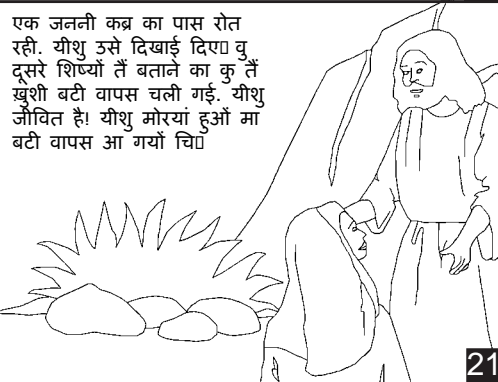 एक जननी कब्र का पास रोत
रही. यीशु उसे दिखाई दिए▯ वु
दूसरे शिष्यों तैं बताने का कु तैं
ख़ुशी बटी वापस चली गई. यीशु
जीवित है! यीशु मोरयां हुओं मा
बटी वापस आ गयों चि▯
21